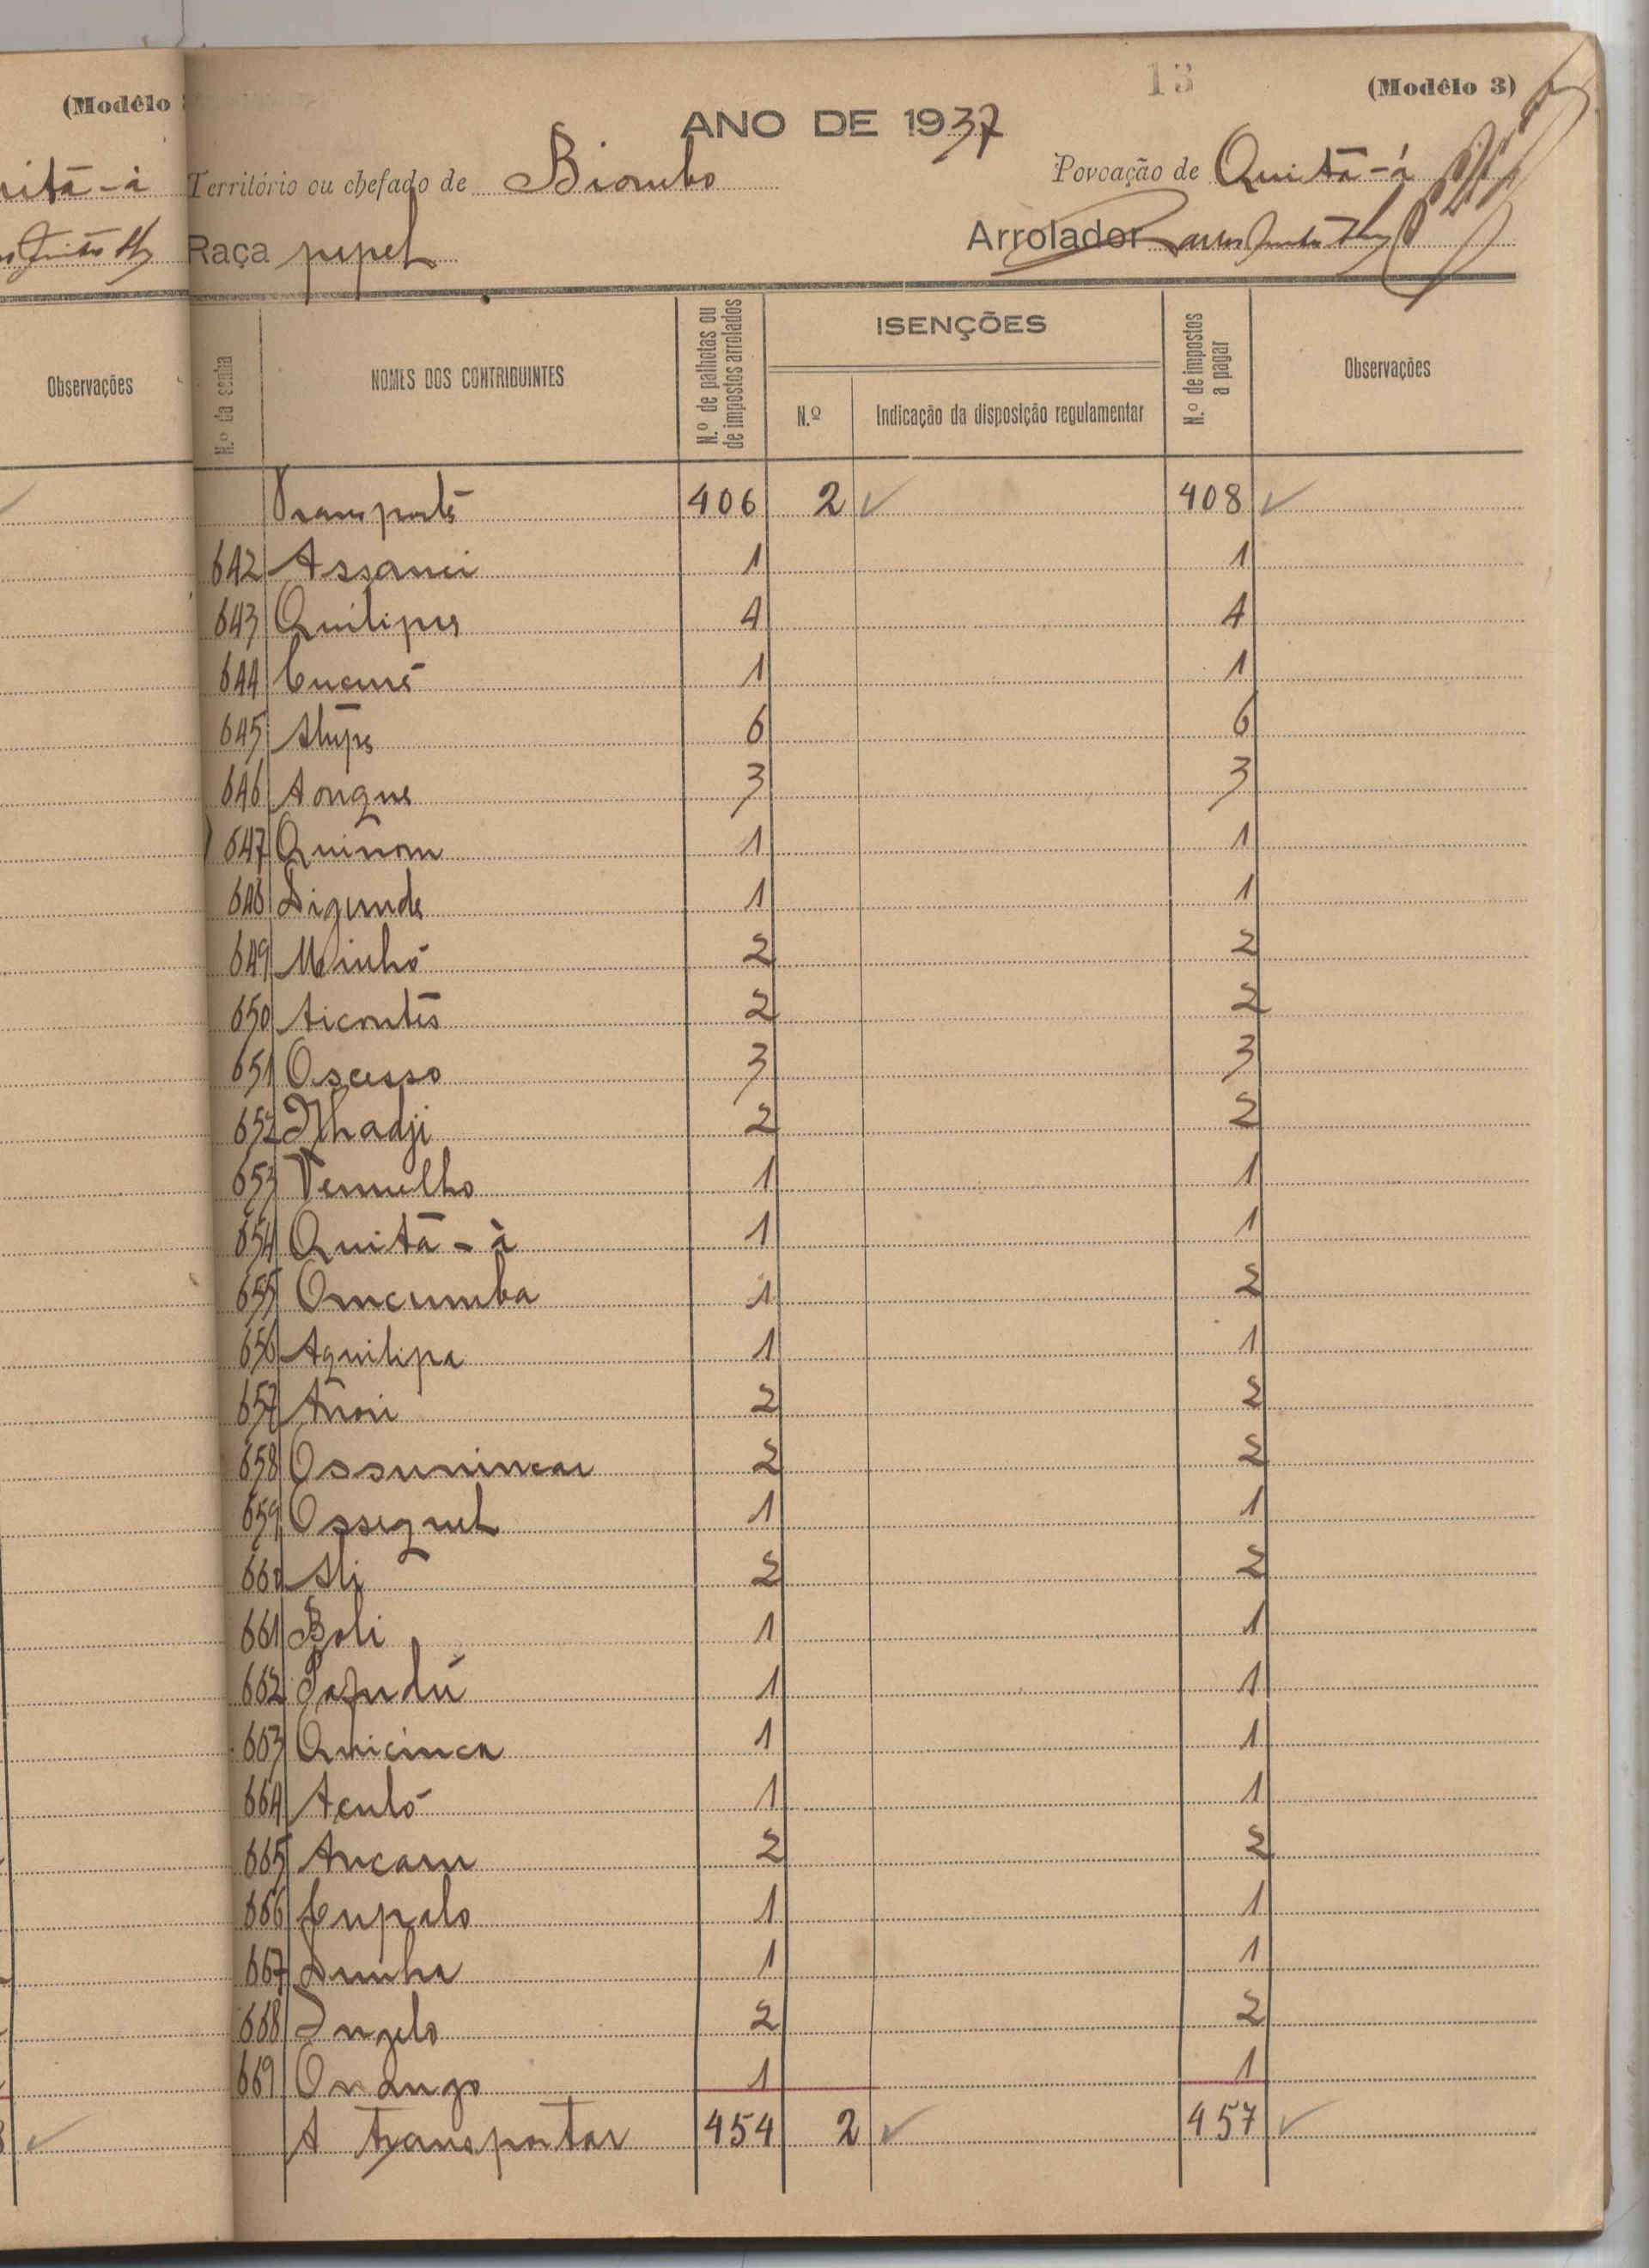 (Modêlo
13
(Modêlo 3)
ANO DE 1937
uitā-á
Território ou chefado de Biombo
Povoação de Quitā-á
Raça pepel
Arrolador Carlos
Observações
N.º da senha
NOMES DOS CONTRIBUINTES
N.º de palhotas ou de impostos arrolados
ISENÇÕES
N.º
Indicação da disposição regulamentar
N.º de impostos a pagar
Observações
Transporte 406 2 ✓ 408 ✓
642 Assanei 1 1
643 Quilipes 4 4
644 Cucué 1 1
645 6 6
646 Aongue 3 3
647 Quinom 1 1
648 Digunde 1 1
649 Minhó 2 2
650 Aicontés 2 2
651 Ocusso 3 3
652 Nhadji 2 2
653 Vermelho 1 1
654 Quitā-à 1 1
655 Omcumba 1 2
656 Aquilipa 1 1
657 Anoi 2 2
658 Ossunincar 2 2
659 Ossequel 1 1
660 Ali 2 2
661 Boli 1 1
662 1 1
663 Quicinca 1 1
664 Aculó 1 1
665 Ancam 2 2
666 Cupalo 1 1
667 Dunha 1 1
668 Ingelo 2 2
669 Onango 1 1
A transportar 454 2 ✓ 457 ✓